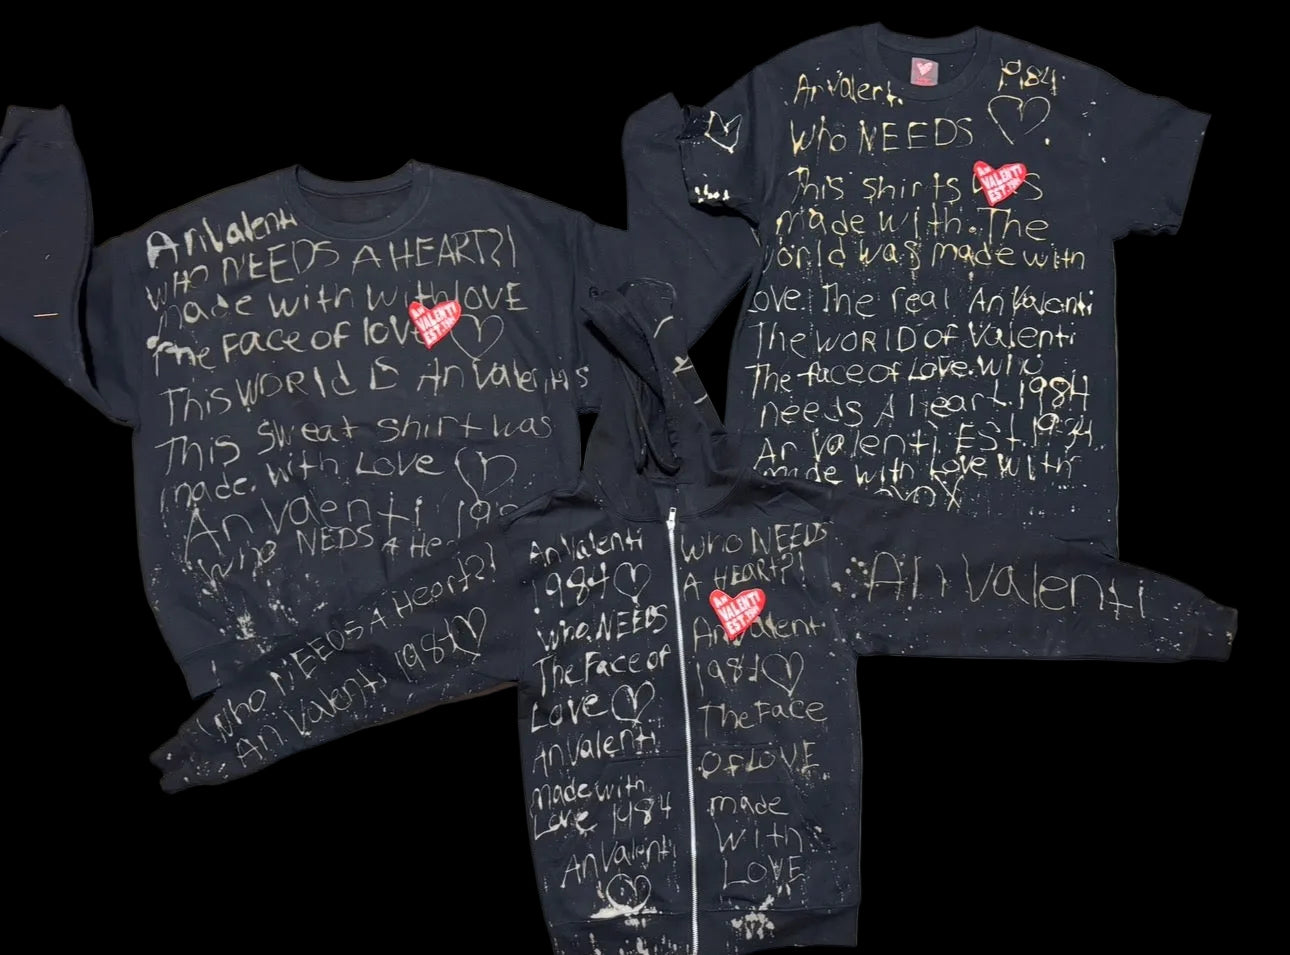 An Valenti
WHO NEEDS A HEART?!
made with with LOVE
The Face of love
AN
VALENTI
EST. 1984
This WORld is An Valentis
This Sweat shirt was
made. with Love
An Valenti 19
Who NEDS A He
An Valenti
1984
Who NEEDS
This shirts
AN
VALENTI
EST. 1984
made with. The
World was made with
Love. The real An Valenti
The WORlD of Valenti
The face of Love. Who
needs A Heart. 1984
An Valenti EST. 1984
made with Love with
Who NEEDS A Heart?!
An Valenti 1984
An Valenti
1984
Who NEEDS
The Face of
Love
An Valenti
made with
Love 1984
An Valenti
Who NEEDS
A HEART?!
AN
VALENTI
EST. 1984
An Valenti
1984
The Face
Of LOVE
made
With
LOVE
An Valenti